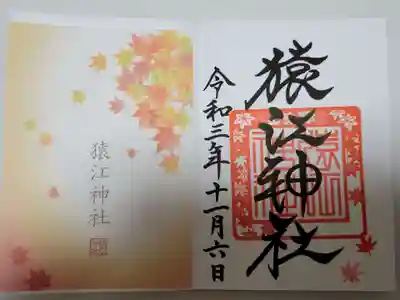 猿江神社
令和三年十一月六日
猿江神社